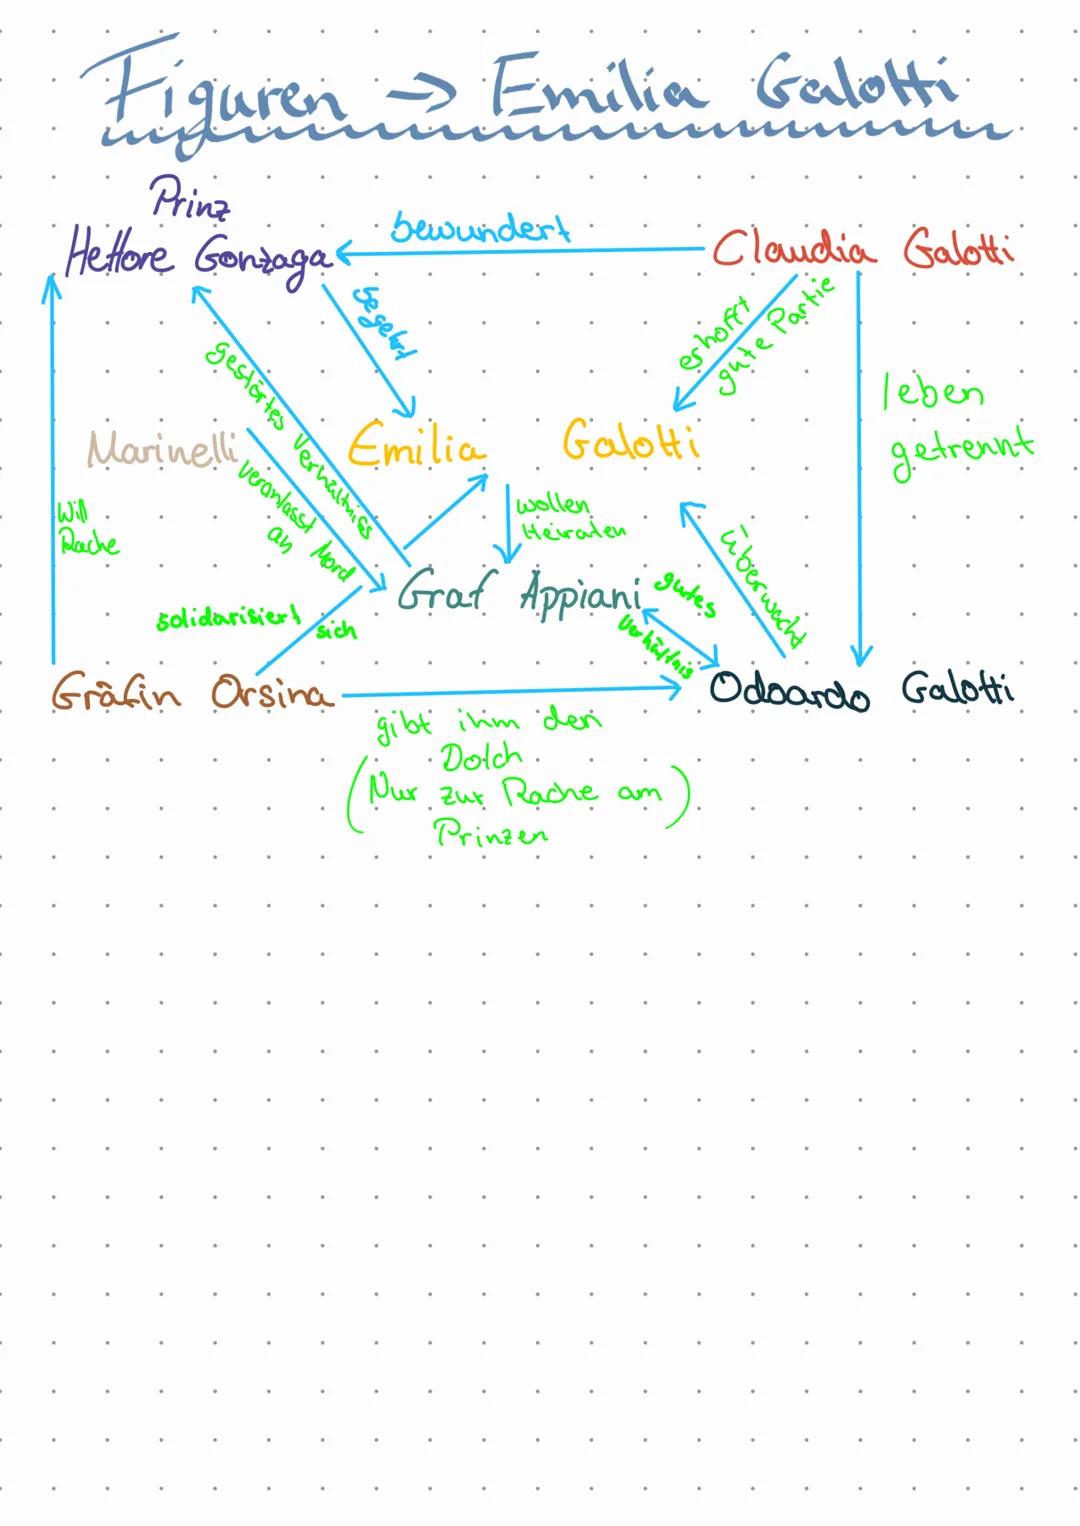 Figuren → Emilia Galotti
Prinz
Hettore Gonzaga
bewundert
Claudia Galotti
begehrt
erhofft
gute Partie
gestörtes Verhältniss
leben
getrennt
Marinelli
Emilia Galotti
veranlasst Mord
an
Will
Rache
wollen
Heiraten
überwacht
Graf Appiani
gutes
Verhältnis
solidarisiert
sich
Gräfin Orsina
Odoardo Galotti
gibt ihm den
Dolch
(Nur zur Rache am
Prinzen)